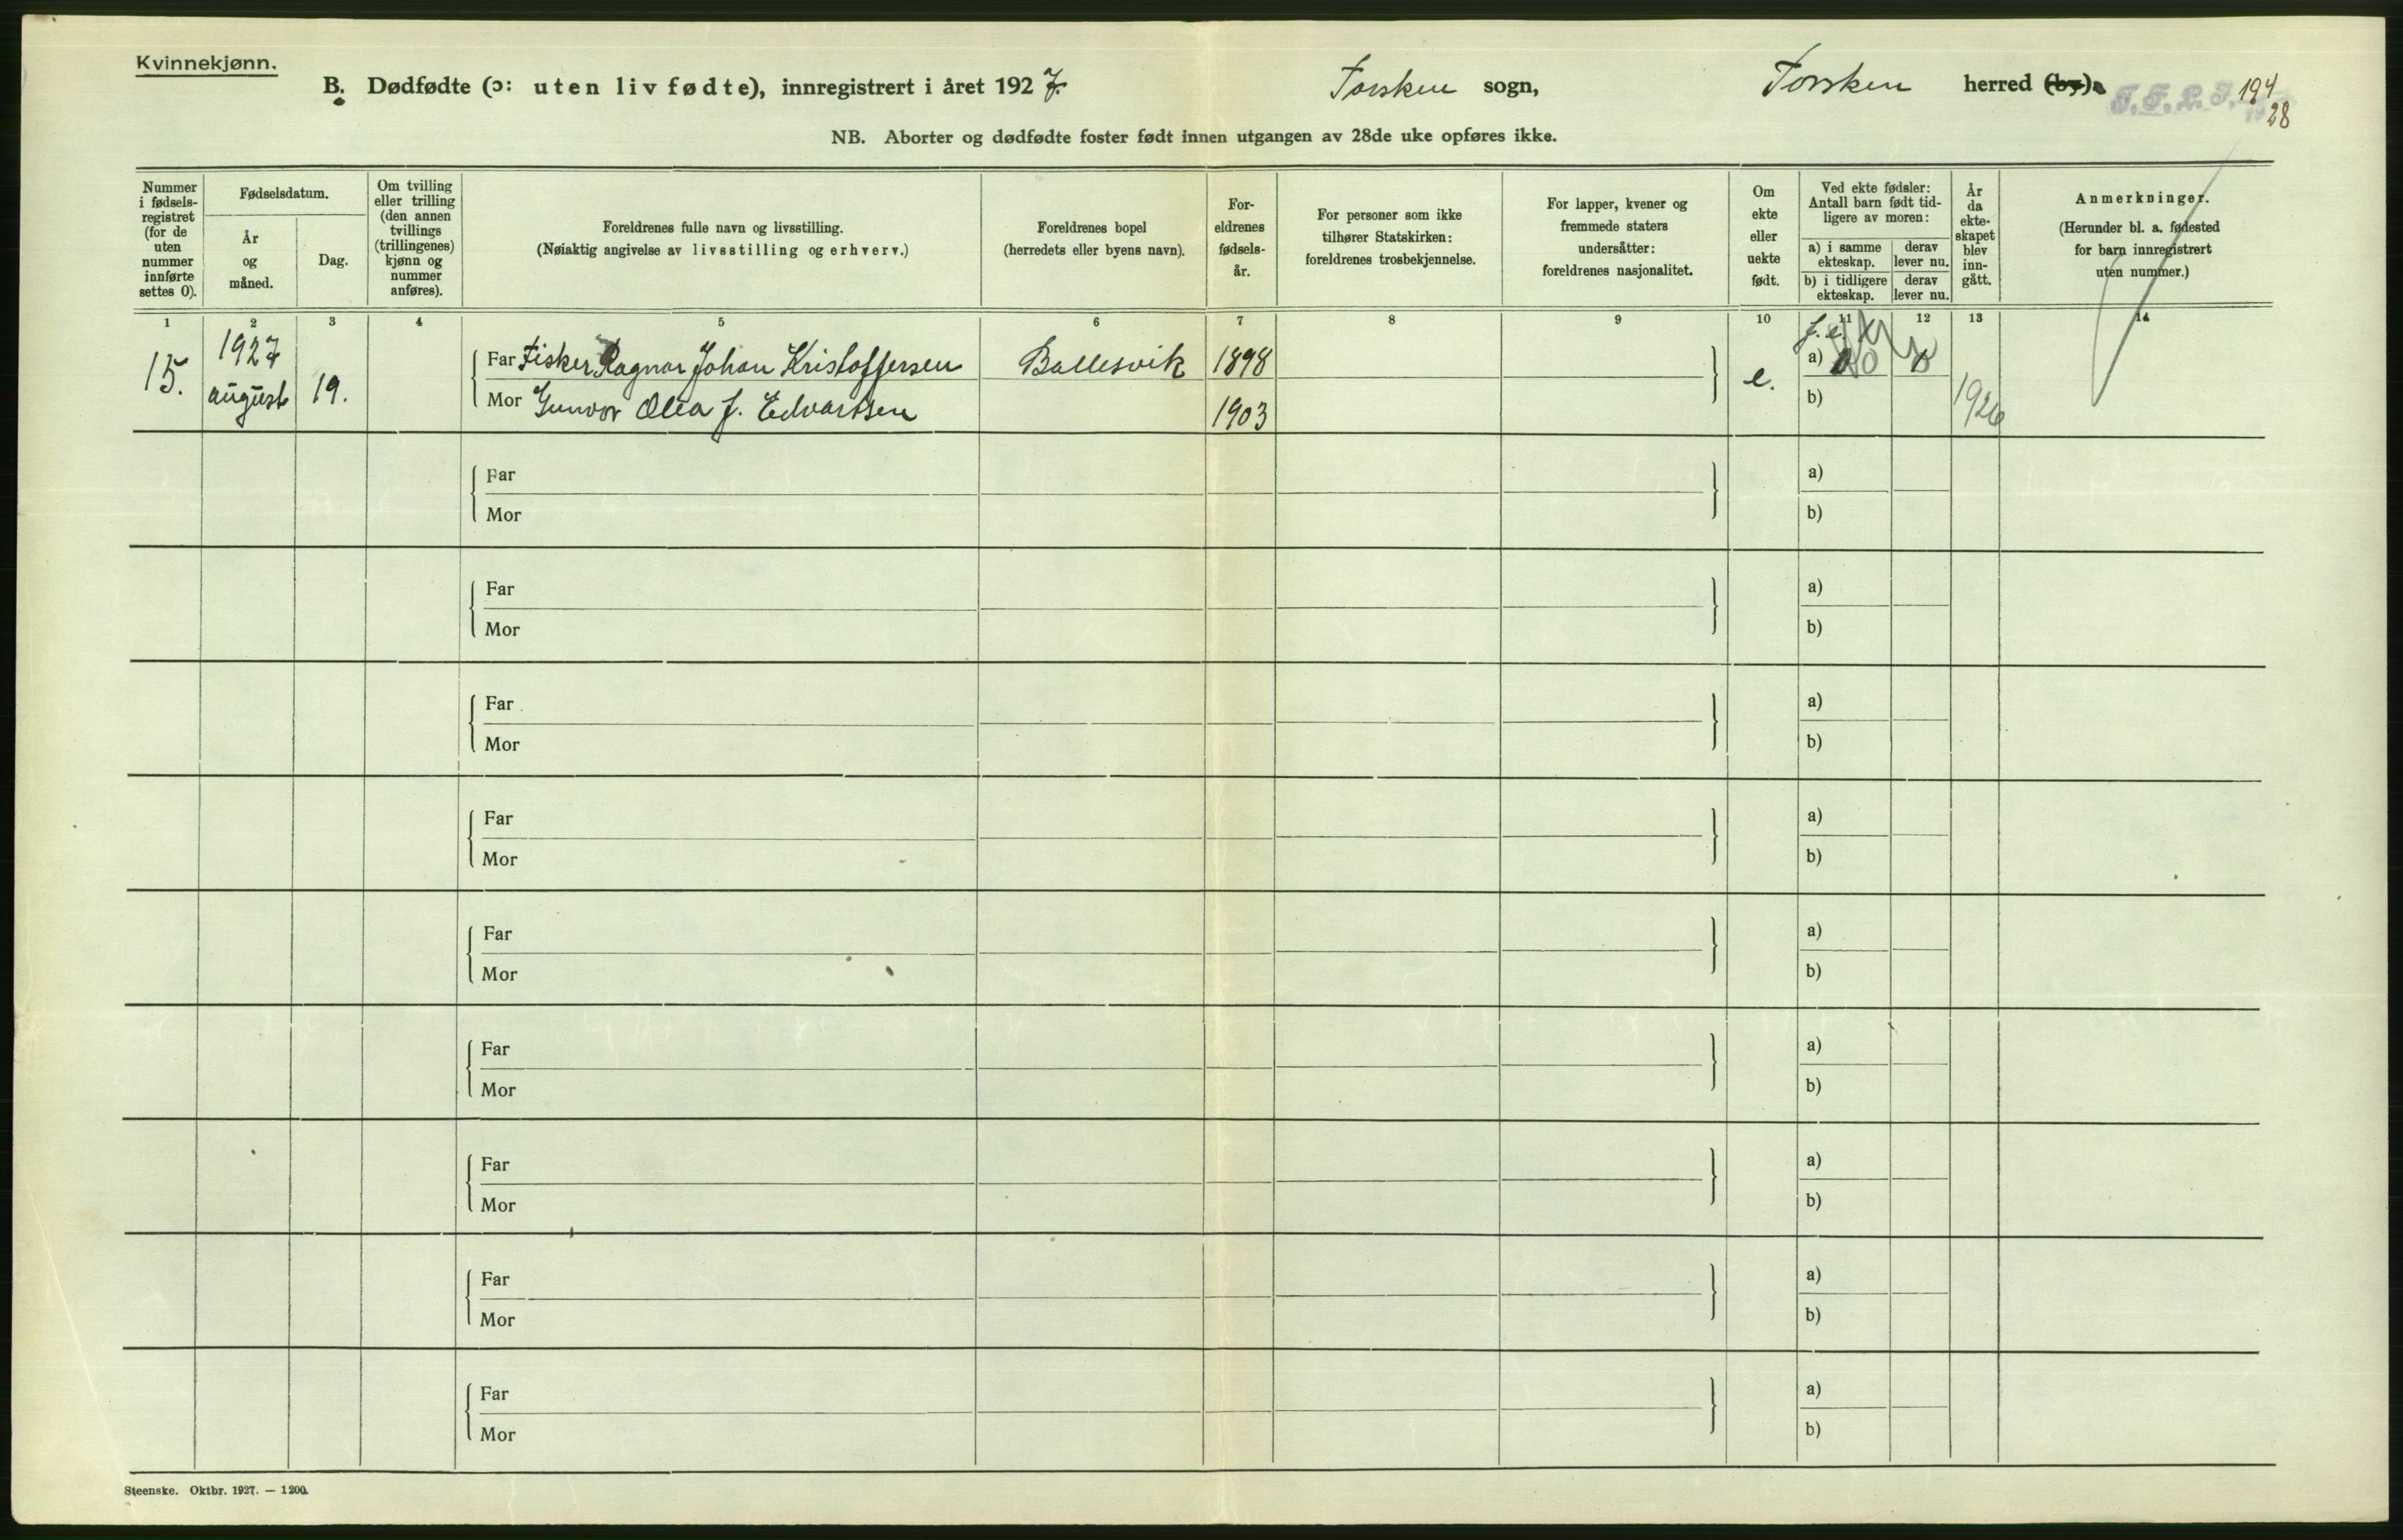 Kvinnekjønn.
B. Dødfødte (ɔ: uten liv fødte), innregistrert i året 1927. Torsken sogn, Torsken herred (by).
194
28
NB. Aborter og dødfødte foster født innen utgangen av 28de uke opføres ikke.
Nummer i fødsels-registret (for de uten nummer innførte settes 0).
Fødselsdatum.
År og måned.
Dag.
Om tvilling eller trilling (den annen tvillings (trillingenes) kjønn og nummer anføres).
Foreldrenes fulle navn og livsstilling.
(Nøiaktig angivelse av livsstilling og erhverv.)
Foreldrenes bopel
(herredets eller byens navn).
For-eldrenes fødsels-år.
For personer som ikke tilhører Statskirken: foreldrenes trosbekjennelse.
For lapper, kvener og fremmede staters undersåtter: foreldrenes nasjonalitet.
Om ekte eller uekte født.
Ved ekte fødsler: Antall barn født tid-ligere av moren:
a) i samme ekteskap.
derav lever nu.
b) i tidligere ekteskap.
derav lever nu.
År da ekte-skapet blev inn-gått.
Anmerkninger.
(Herunder bl. a. fødested for barn innregistrert uten nummer.)
1 2 3 4 5 6 7 8 9 10 11 12 13 14
15. 1927 august 19.
Far Fisker Ragnar Johan Kristoffersen Ballesvik 1898 e. a) 0 0
Mor Gunvor Olea f. Edvartsen 1903 b) 1926
Far a)
Mor b)
Far a)
Mor b)
Far a)
Mor b)
Far a)
Mor b)
Far a)
Mor b)
Far a)
Mor b)
Far a)
Mor b)
Far a)
Mor b)
Far a)
Mor b)
Steenske. Oktbr. 1927. — 1200.